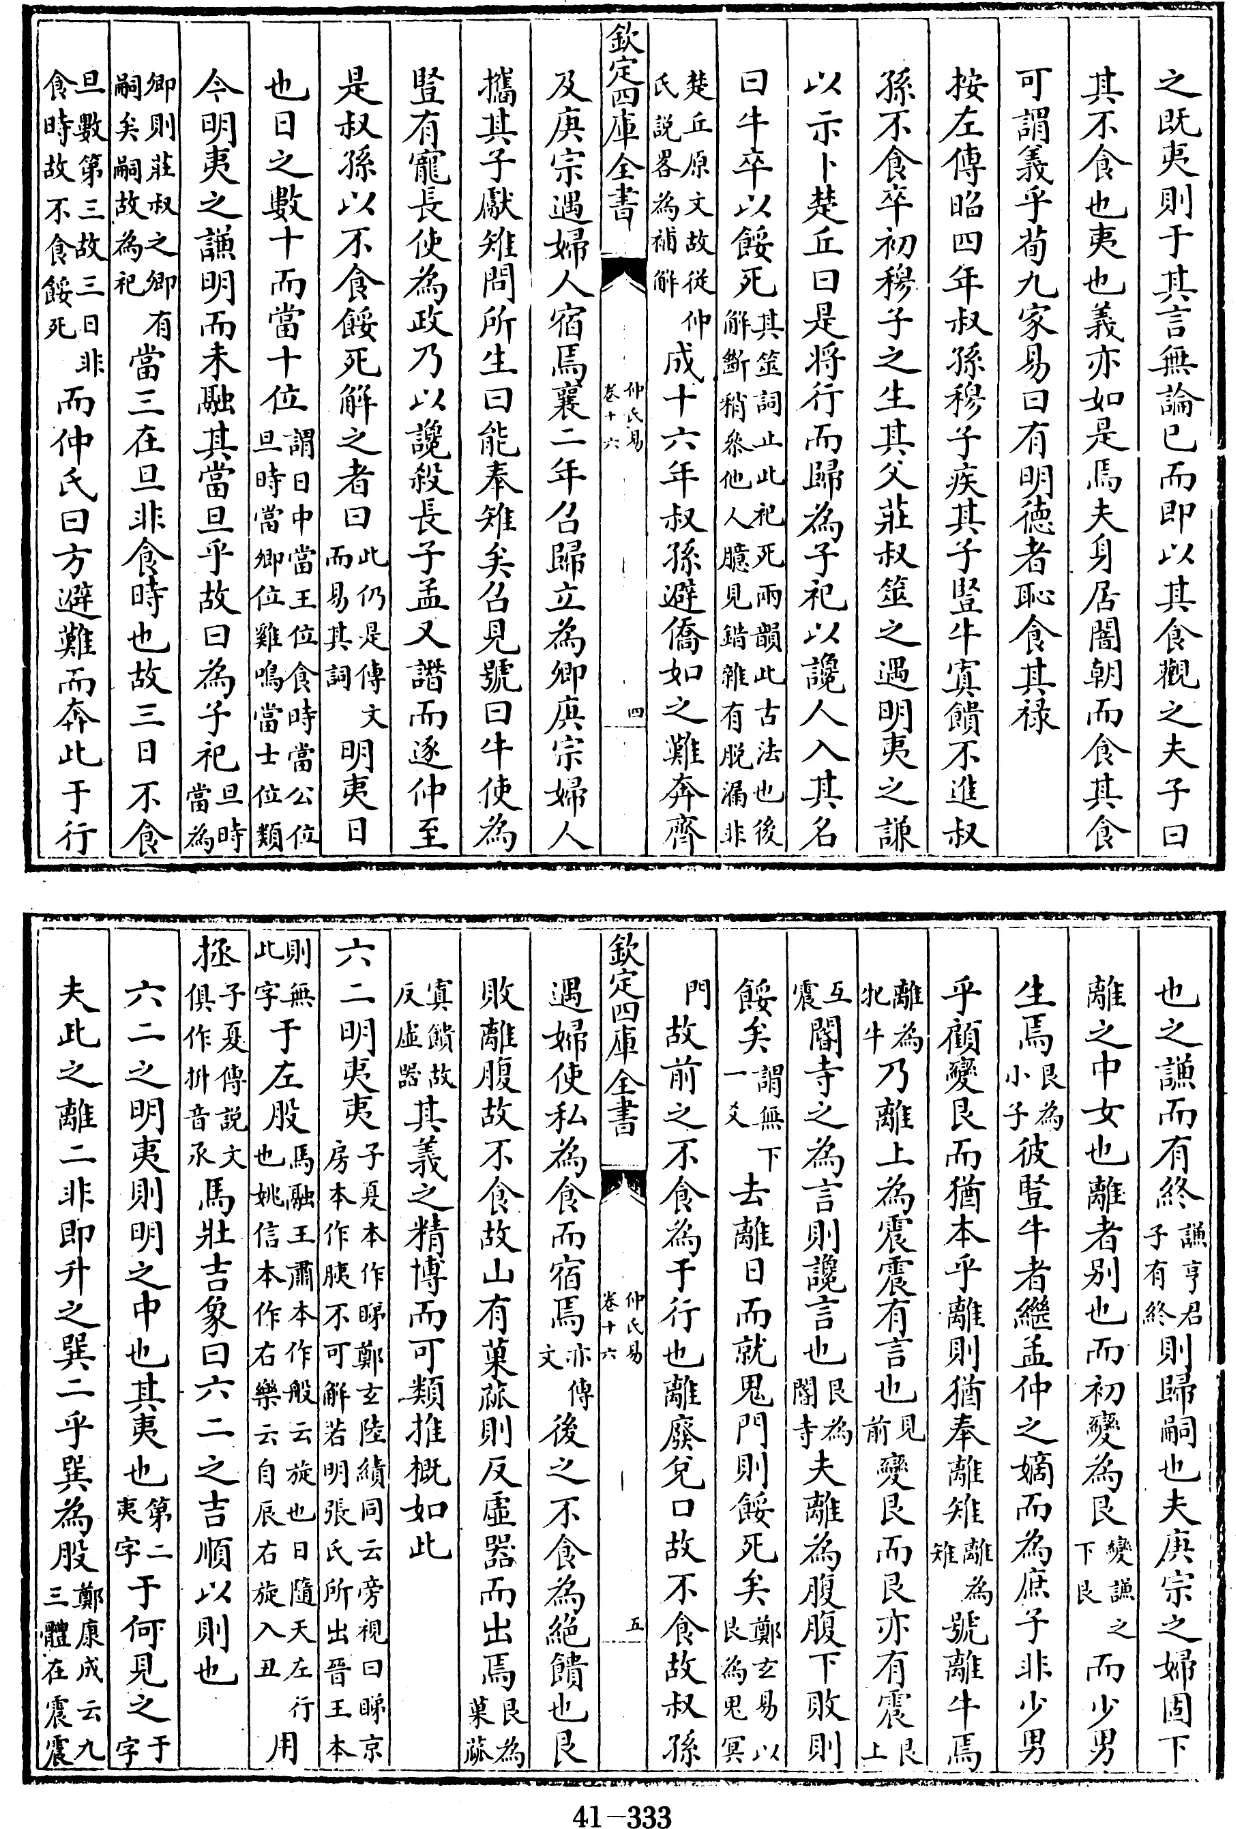 之既夷則于其言無論已而即以其食觀之夫子曰
其不食也夷也義亦如是焉夫身居闇朝而食其食
可謂義乎荀九家易曰有明德者恥食其禄
按左傳昭四年叔孫穆子疾其子豎牛寘饋不進叔
孫不食卒初穆子之生其父莊叔筮之遇明夷之謙
以示卜楚丘曰是将行而歸為子祀以讒人入其名
曰牛卒以餒死其筮詞止此祀死兩韻此古法也後解斷稍叅他人臆見錯雜有脱漏非
楚丘原文故從仲氏説畧為補解成十六年叔孫避僑如之難奔齊
欽定四庫全書
仲氏易
卷十六
四
及庚宗遇婦人宿焉襄二年召歸立為卿庚宗婦人
攜其子獻雉問所生曰能奉雉矣召見號曰牛使為
豎有寵長使為政乃以讒殺長子孟又譖而逐仲至
是叔孫以不食餒死解之者曰此仍是傳文而易其詞明夷日
也日之數十而當十位謂日中當王位食時當公位旦時當卿位雞鳴當士位類
今明夷之謙明而未融其當旦乎故曰為子祀旦時當為
卿則莊叔之卿有嗣矣嗣故為祀當三在旦非食時也故三日不食
旦數第三故三日非食時故不食餒死而仲氏曰方避難而奔此于行
也之謙而有終謙亨君子有終則歸嗣也夫庚宗之婦固下
離之中女也離者别也而初變為艮變謙之下艮而少男
生焉艮為小子彼豎牛者繼孟仲之嫡而為庶子非少男
乎顧變艮而猶本乎離則猶奉離雉離為雉號離牛焉
離為牝牛乃離上為震震有言也見前變艮而艮亦有震艮上
互震閽寺之為言則讒言也艮為閽寺夫離為腹腹下敗則
餒矣謂無下一爻去離日而就鬼門則餒死矣鄭玄易以艮為鬼冥
門故前之不食為于行也離廢兌口故不食故叔孫
欽定四庫全書
仲氏易
卷十六
五
遇婦使私為食而宿焉亦傳文後之不食為絶饋也艮
敗離腹故不食故山有菓蓏則反虚器而出焉艮為菓蓏
寘饋故反虚器其義之精博而可類推概如此
六二明夷夷子夏本作睇鄭玄陸績同云旁視曰睇京房本作胰不可解若明張氏所出晉王本
則無此字于左股馬融王肅本作般云旋也日隨天左行也姚信本作右樂云自辰右旋入丑用
拯子夏傳説文俱作拼音承馬壯吉象曰六二之吉順以則也
六二之明夷則明之中也其夷也第二夷字于何見之于字
夫此之離二非即升之巽二乎巽為股鄭康成云九三體在震震
41-333